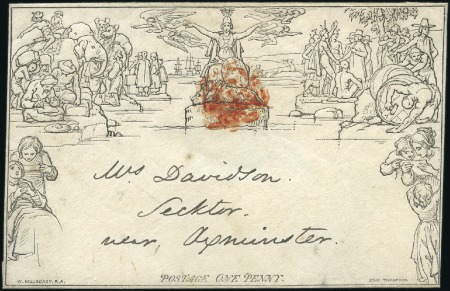 Mrs Davidson.
Secktor.
near, Axminster.
POSTAGE ONE PENNY.
W. MULREADY, R.A. JOHN THOMPSON